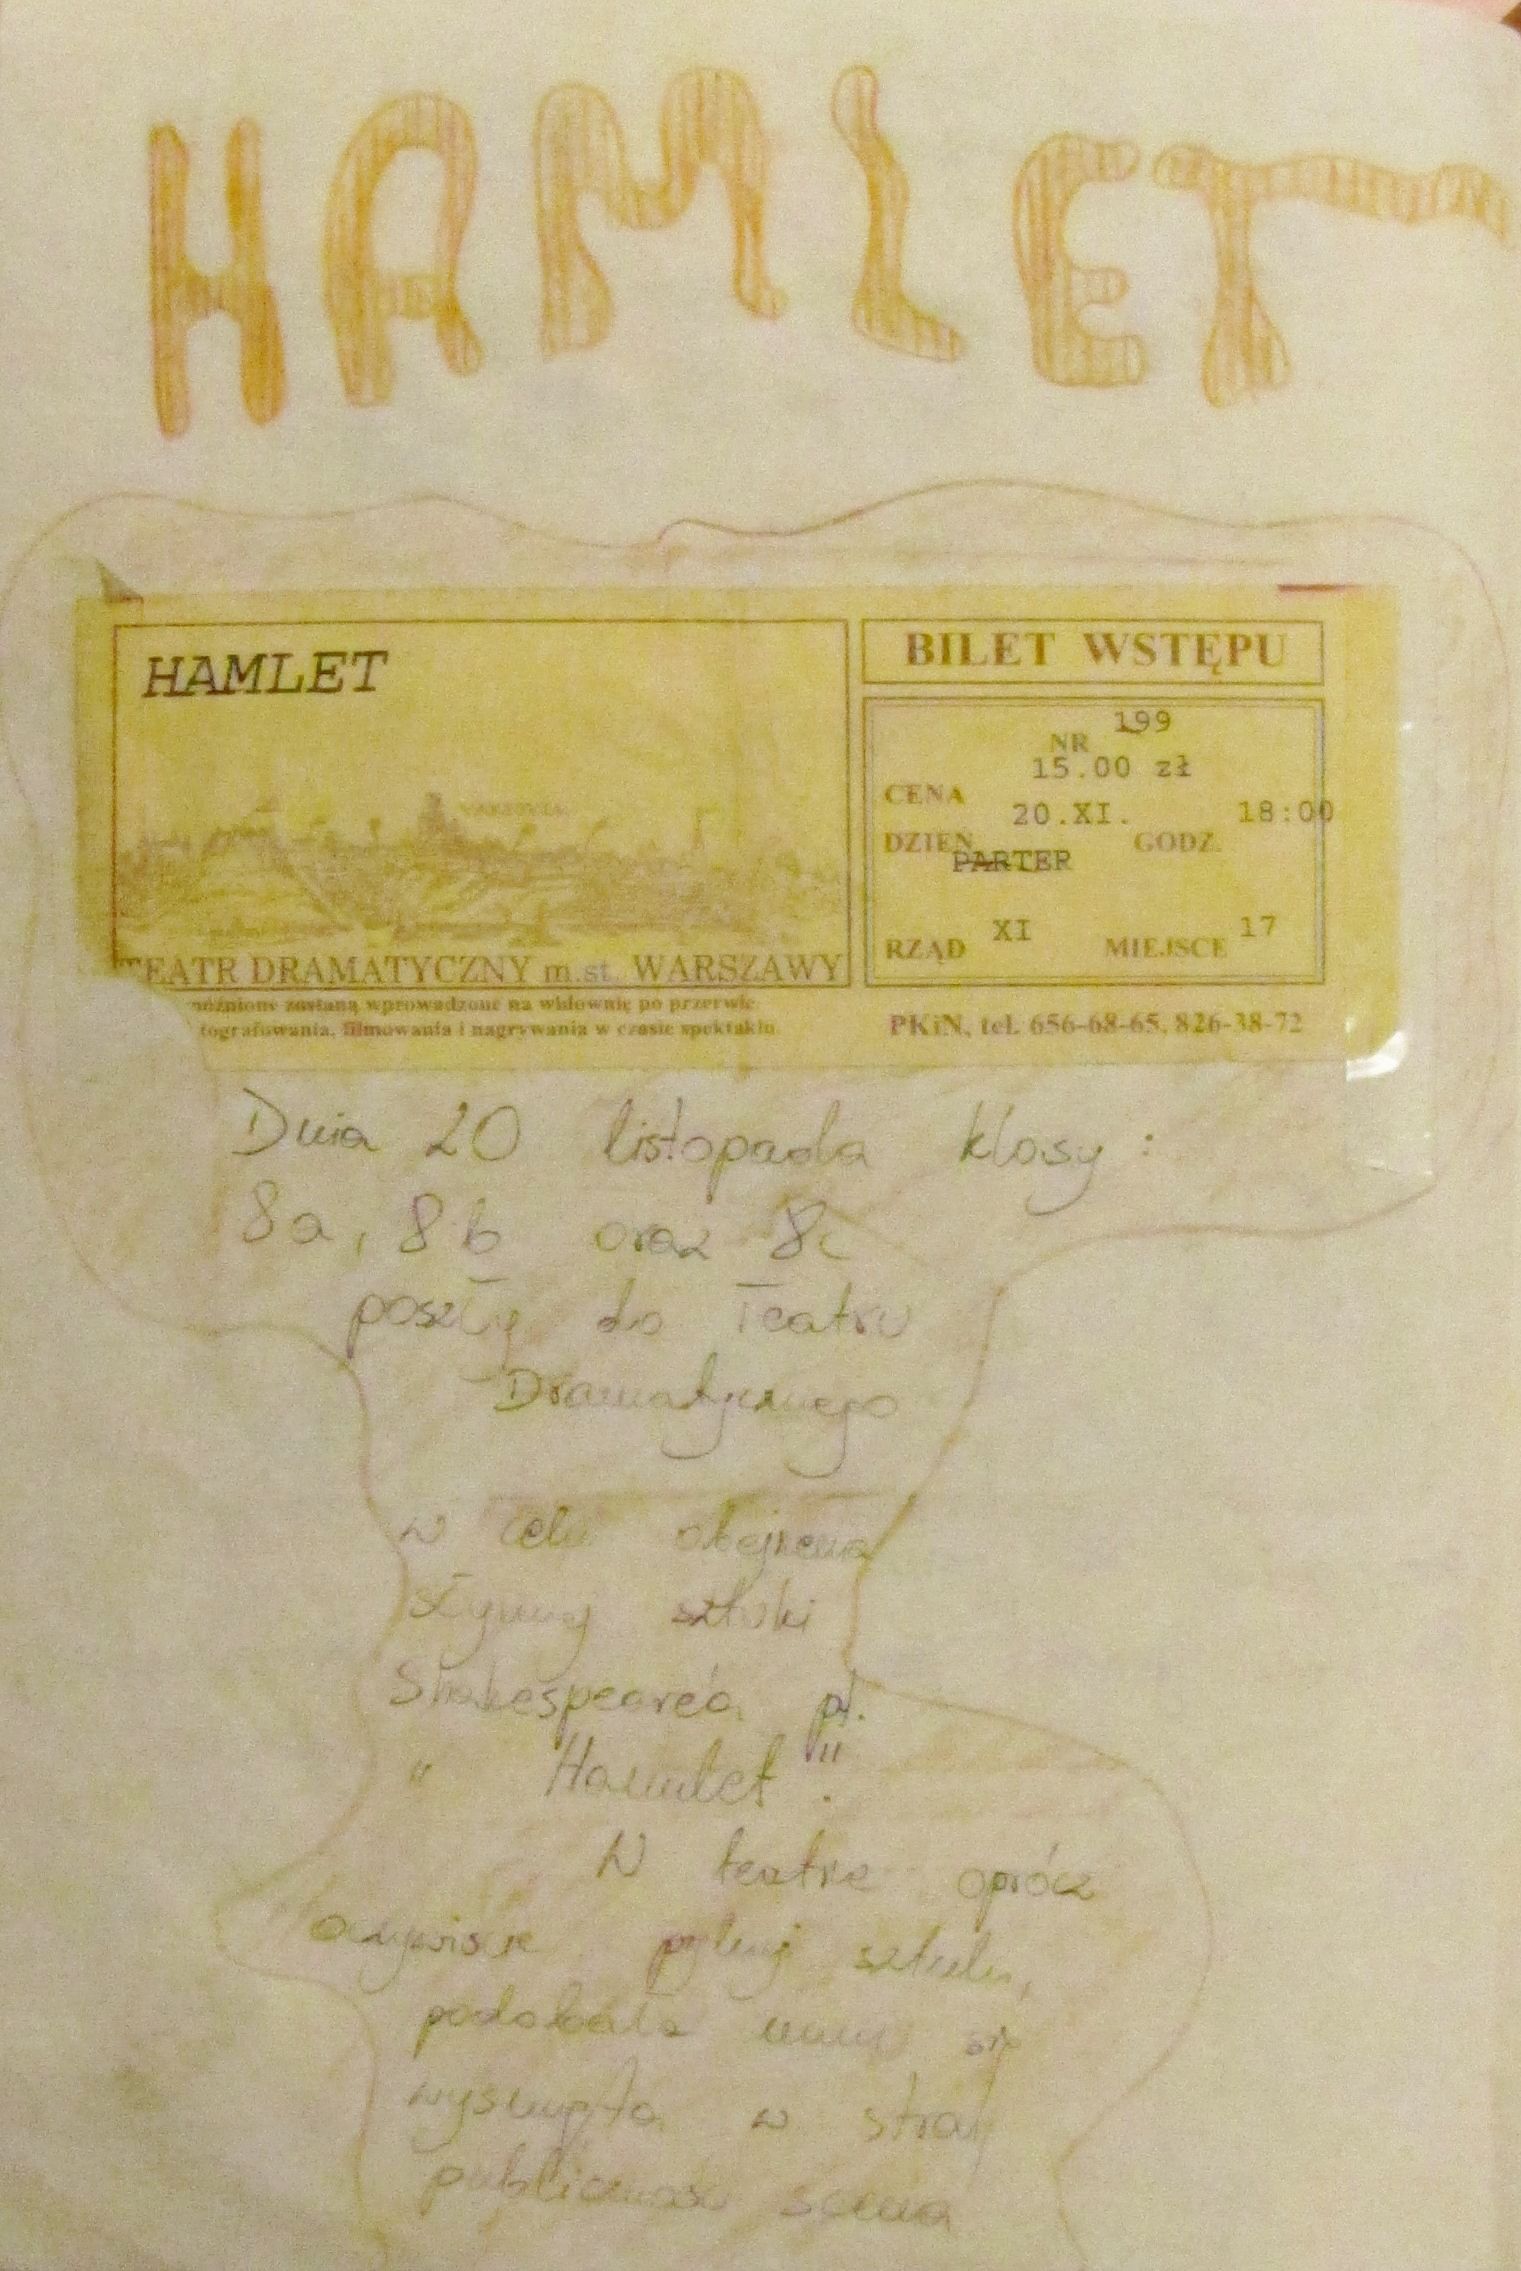 HAMLET
HAMLET
WARSOVIA
TEATR DRAMATYCZNY m.st. WARSZAWY
zostaną wprowadzone na widownię po przerwie
tografowania, filmowania i nagrywania w czasie spektaklu
BILET WSTĘPU
199
NR
15.00 zł
CENA
20.XI. 18:00
DZIEŃ GODZ.
PARTER
XI 17
RZĄD MIEJSCE
PKiN, tel. 656-68-65, 826-38-72
Dnia 20 listopada klasy:
8a, 8b oraz 8c
poszły do Teatru
Dramatycznego
w celu obejrzenia
słynnej sztuki
Shakespeare'a pt.
" Hamlet".
W teatrze oprócz
oczywiście sztuki,
podobała nam się
wysunięta w stronę
publiczności scena